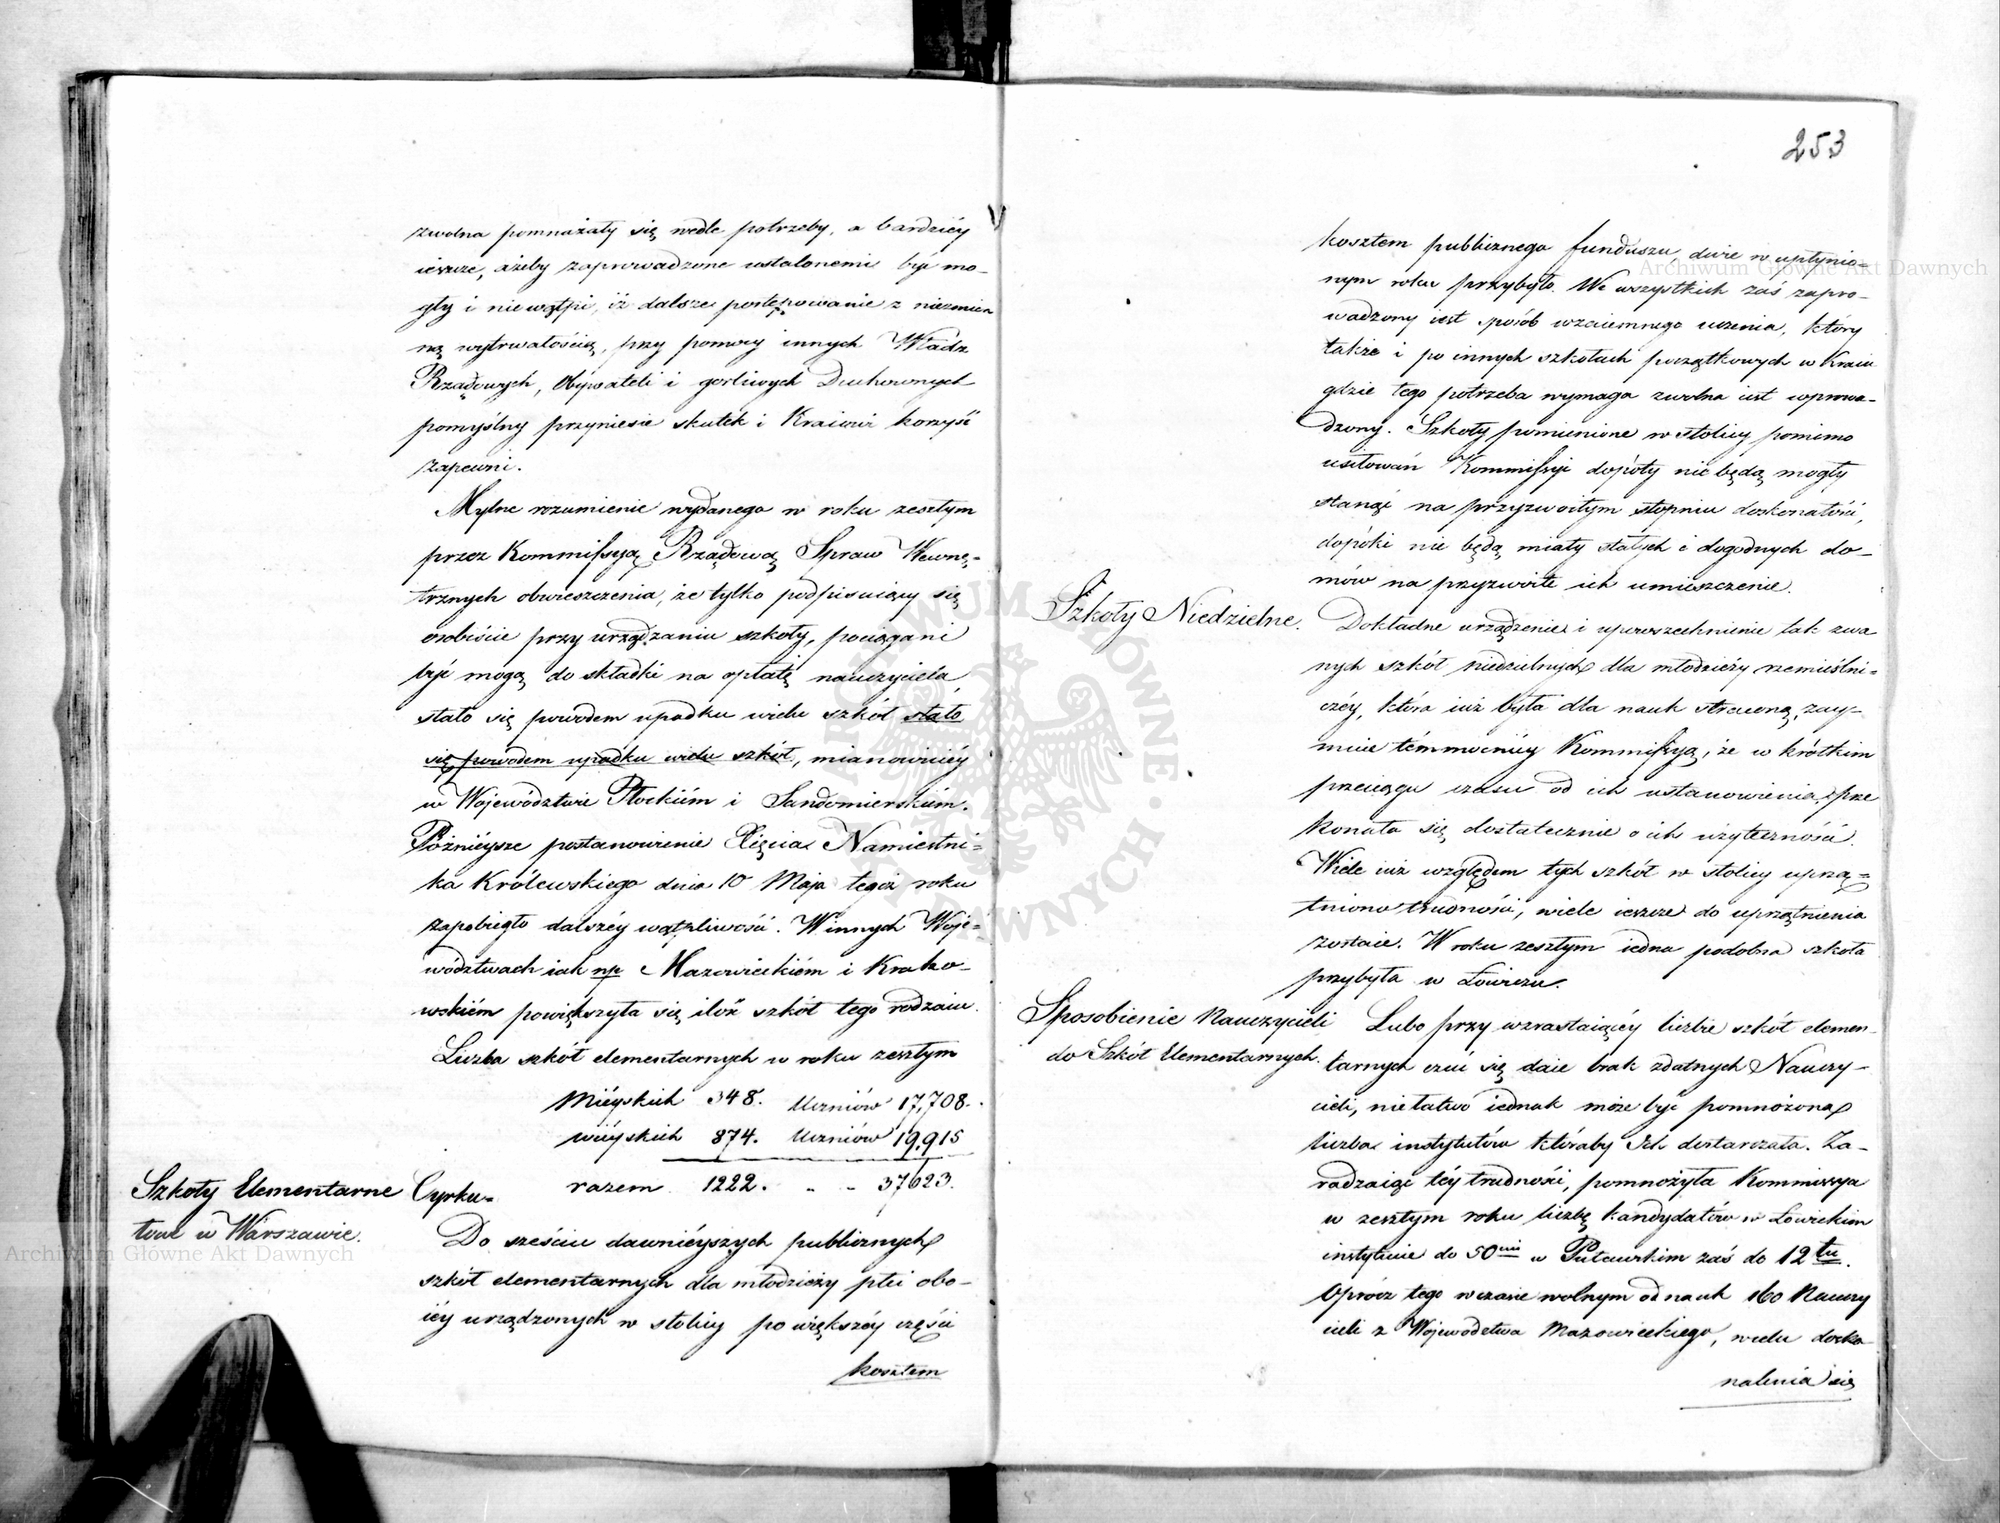 zwolna pomnażały się wedle potrzeby, a bardziéy
ieszcze, ażeby zaprowadzone ustalonemi być mo-
gły i nie wątpi, iż dalsze postępowanie z niezmien
ną wytrwałością, przy pomocy innych Władz
Rządowych, Obywateli i gorliwych Duchownych
pomyślny przyniesie skutek i Kraiowi korzyść
zapewni.
Mylne rozumienie wydanego w roku zeszłym
przez Kommissyą Rządową Spraw Wewnę-
trznych obwieszczenia, że tylko podpisuiący się
osobiście przy urządzaniu szkoły, pociągani
być mogą do składki na opłatę nauczyciela,
stało się powodem upadku wielu szkół stało
się powodem upadku wielu szkół, mianowiciéy
w Województwie Płockiém i Sandomierskim.
Późnieysze postanowienie Xięcia Namiestni-
ka Królewskiego dnia 10 Maja tegoż roku
zapobiegło dalszéy wątpliwości. W innych Woje-
wództwach iak np Mazowieckiém i Krako-
wskiém powiększyła się ilość szkół tego rodzaiu.
Liczba szkół elementarnych w roku zeszłym
Mieyskich 348. Uczniów 17,708.
wieyskich 874. Uczniów 19,915
razem 1222. " - 37623.
Szkoły Elementarne Cyrku-
łowe w Warszawie.
Do sześciu dawnieyszych publicznych
szkół elementarnych dla młodzieży płci obo-
iéy urządzonych w stolicy po większéy części
kosztem
253
kosztem publicznego funduszu, dwie w upłynio-
nym roku przybyło. We wszystkich zaś zapro-
wadzony iest sposób wzaiemnego uczenia, który
także i po innych szkołach początkowych w Kraiu
gdzie tego potrzeba wymaga zwolna iest wprowa-
dzony. Szkoły pomienione w stolicy pomimo
usiłowań Kommissyi dopóty nie będą mogły
stanąć na przyzwoitym stopniu doskonałości,
dopóki nie będą miały stałych i dogodnych do-
mów na przyzwoite ich umieszczenie.
Szkoły Niedzielne.
Dokładne urządzenie i upowszechnienie tak zwa
nych szkół niedzielnych dla młodzieży rzemieślni-
czéy, która iuż była dla nauk straconą, zay-
muie témmocniéy Kommissyą, że w krótkim
przeciągu czasu od ich ustanowienia, prze
konała się dostatecznie o ich użyteczności.
Wiele iuż względem tych szkół w stolicy uprzą-
tniono trudności, wiele ieszcze do uprzątnienia
zostaie. W roku zeszłym iedna podobna szkoła
przybyła w Łowiczu.
Sposobienie Nauczycieli
do Szkół Elementarnych.
Lubo przy wzrastaiącéy liczbie szkół elemen-
tarnych czuć się daie brak zdatnych Nauczy-
cieli, niełatwo iednak może być pomnożona
liczba instytutów któraby Ich dostarczała. Za-
radzaiąc téy trudności, pomnożyła Kommissya
w zeszłym roku liczbę kandydatów w Łowickim
instytucie do 50ciu w Puławskim zaś do 12tu.
Oprócz tego w czasie wolnym od nauk 160 Nauczy
cieli z Województwa Mazowieckiego, w celu dosko-
nalenia się
Archiwum Główne Akt Dawnych
Archiwum Główne Akt Dawnych
ARCHIWUM GŁÓWNE AKT DAWNYCH